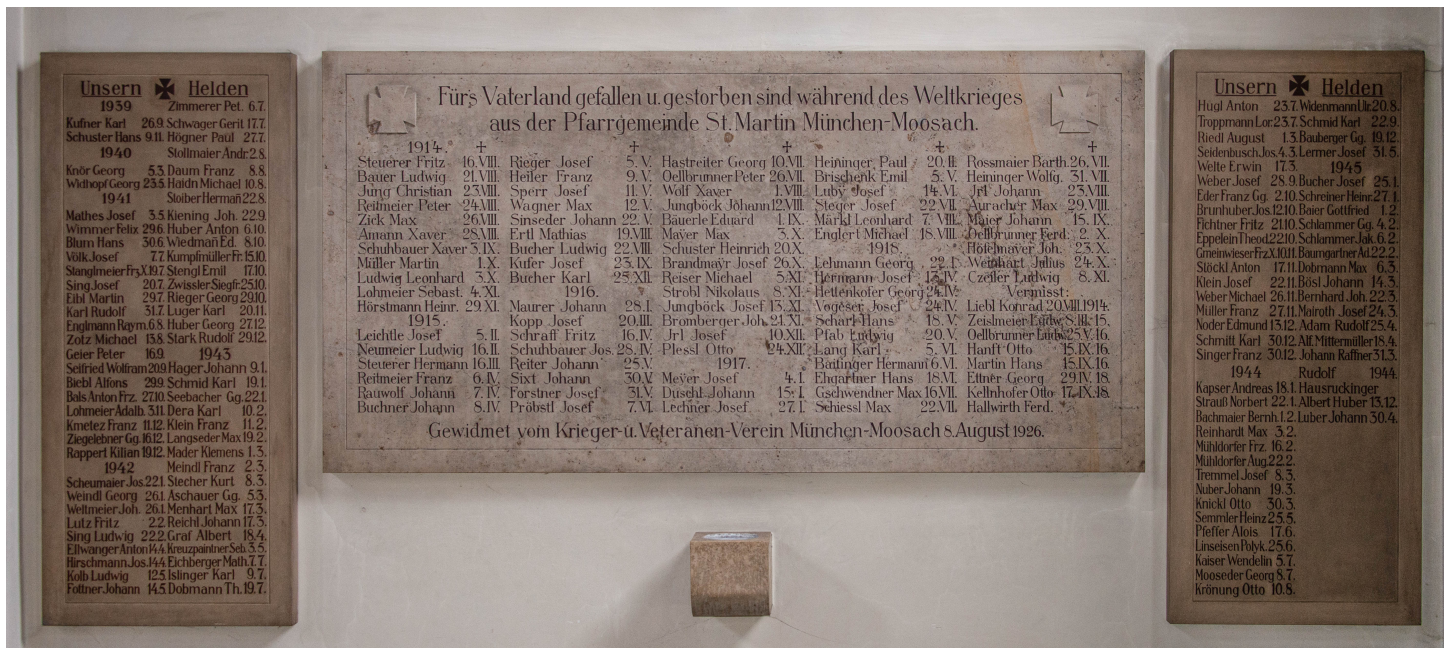 Unsern Helden
1939
Kufner Karl 26.9.
Schuster Hans 9.11.
1940
Knör Georg 5.3.
Widhopf Georg 23.5.
1941
Mathes Josef 3.5.
Wimmer Felix 29.6.
Blum Hans 30.6.
Völk Josef 7.7.
Stanglmeier Frz.X. 19.7.
Sing Josef 20.7.
Eibl Martin 29.7.
Karl Rudolf 31.7.
Englmann Raym. 6.8.
Zotz Michael 13.8.
Geier Peter 16.9.
Seifried Wolfram 20.9.
Biebl Alfons 29.9.
Bals Anton Frz. 27.10.
Lohmeier Adalb. 3.11.
Kmetez Franz 11.12.
Ziegelebner Gg. 16.12.
Rappert Kilian 19.12.
1942
Scheumaier Jos. 22.1.
Weindl Georg 26.1.
Weltmeier Joh. 26.1.
Lutz Fritz 2.2.
Sing Ludwig 22.2.
Ellwanger Anton 14.4.
Hirschmann Jos. 14.4.
Kolb Ludwig 12.5.
Fottner Johann 14.5.
Zimmerer Pet. 6.7.
Schwager Gerit. 17.7.
Högner Paul 27.7.
Stollmaier Andr. 2.8.
Daum Franz 8.8.
Haidn Michael 10.8.
Stoiber Hermañ 22.8.
Kiening Joh. 22.9.
Huber Anton 6.10.
Wiedman Ed. 8.10.
Kumpfmüller Fr. 15.10.
Stengl Emil 17.10.
Zwissler Siegfr. 25.10.
Rieger Georg 29.10.
Luger Karl 20.11.
Huber Georg 27.12.
Stark Rudolf 29.12.
1943
Hager Johann 9.1.
Schmid Karl 19.1.
Seebacher Gg. 22.1.
Dera Karl 10.2.
Klein Franz 11.2.
Langseder Max 19.2.
Mader Klemens 1.3.
Meindl Franz 2.3.
Stecher Kurt 8.3.
Aschauer Gg. 5.3.
Menhart Max 17.3.
Reichl Johann 17.3.
Graf Albert 18.4.
Kreuzpaintner Seb. 3.5.
Eichberger Math. 7.7.
Islinger Karl 9.7.
Dobmann Th. 19.7.
Fürs Vaterland gefallen u. gestorben sind während des Weltkrieges
aus der Pfarrgemeinde St. Martin München-Moosach.
1914. +
Steuerer Fritz 16.VIII.
Bauer Ludwig 21.VIII.
Jung Christian 23.VIII.
Reitmeier Peter 24.VIII.
Zick Max 26.VIII.
Amann Xaver 28.VIII.
Schuhbauer Xaver 3.IX.
Müller Martin 1.X.
Ludwig Leonhard 3.X.
Lohmeier Sebast. 4.XI.
Hörstmann Heinr. 29.XI.
1915.
Leichtle Josef 5.II.
Neumeier Ludwig 16.II.
Steuerer Hermann 16.III.
Reitmeier Franz 6.IV.
Rauwolf Johann 7.IV.
Buchner Johann 8.IV.
+
Rieger Josef 5.V.
Heiler Franz 9.V.
Sperr Josef 11.V.
Wagner Max 12.V.
Sinseder Johann 22.V.
Ertl Mathias 19.VIII.
Bucher Ludwig 22.VIII.
Kufer Josef 23.IX.
Bucher Karl 25.XII.
1916.
Maurer Johann 28.I.
Kopp Josef 20.III.
Schraff Fritz 16.IV.
Schuhbauer Jos. 28.IV.
Reiter Johann 25.V.
Sixt Johann 30.V.
Forstner Josef 31.V.
Pröbstl Josef 7.VI.
+
Hastreiter Georg 10.VII.
Oellbrunner Peter 26.VII.
Wolf Xaver 1.VIII.
Jungböck Johann 12.VIII.
Bäuerle Eduard 1.IX.
Mayer Max 3.X.
Schuster Heinrich 20.X.
Brandmayr Josef 26.X.
Reiser Michael 5.XI.
Strobl Nikolaus 8.XI.
Jungböck Josef 13.XI.
Bromberger Joh. 21.XI.
Jrl Josef 10.XII.
Plessl Otto 24.XII.
1917.
Meyer Josef 4.I.
Duschl Johann 15.I.
Lechner Josef 27.I.
+
Heininger, Paul 20.II.
Brischenk Emil 5.V.
Luby Josef 14.VI.
Steger Josef 22.VII.
Märkl Leonhard 7.VIII.
Englert Michael 18.VIII.
1918.
Lehmann Georg 22.I.
Hermann Josef 13.IV.
Hettenkofer Georg 24.IV.
Vogeser Josef 24.IV.
Scharl Hans 18.V.
Pfab Ludwig 20.V.
Lang Karl 5.VI.
Baitinger Hermann 6.VI.
Ehgartner Hans 18.VI.
Gschwendner Max 16.VII.
Schiessl Max 22.VII.
+
Rossmaier Barth. 26.VII.
Heininger Wolfg. 31.VII.
Jrl Johann 23.VIII.
Auracher Max 29.VIII.
Maier Johann 15.IX.
Oellbrunner Ferd. 2.X.
Hölclmayer Joh. 23.X.
Weinhart Julius 24.X.
Czeiler Ludwig 8.XI.
Vermisst:
Liebl Konrad 20.VIII.1914.
Zeislmeier Ludw. 8.III.15.
Oellbrunner Ludw. 25.V.16.
Hanft Otto 15.IX.16.
Martin Hans 15.IX.16.
Ettner Georg 29.IV.18.
Kellnhofer Otto 17.IX.18.
Hallwirth Ferd.
Gewidmet vom Krieger- u. Veteranen-Verein München-Moosach 8. August 1926.
Unsern Helden
Hügl Anton 23.7.
Troppmann Lor. 23.7.
Riedl August 1.3.
Seidenbusch Jos. 4.3.
Welte Erwin 17.3.
Weber Josef 28.9.
Eder Franz Gg. 2.10.
Brunhuber Jos. 12.10.
Fichtner Fritz 21.10.
Eppelein Theod. 22.10.
Gmeinwieser Frz.X. 10.11.
Stöckl Anton 17.11.
Klein Josef 22.11.
Weber Michael 26.11.
Müller Franz 27.11.
Noder Edmund 13.12.
Schmitt Karl 30.12.
Singer Franz 30.12.
1944
Kapser Andreas 18.1.
Strauß Norbert 22.1.
Bachmaier Bernh. 1.2.
Reinhardt Max 3.2.
Mühldorfer Frz. 16.2.
Mühldorfer Aug. 22.2.
Tremmel Josef 8.3.
Nuber Johann 19.3.
Knickl Otto 30.3.
Semmler Heinz 25.5.
Pfeffer Alois 17.6.
Linseisen Polyk. 25.6.
Kaiser Wendelin 5.7.
Mooseder Georg 8.7.
Krönung Otto 10.8.
Widenmann Ulr. 20.8.
Schmid Karl 22.9.
Bauberger Gg. 19.12.
Lermer Josef 31.5.
1945
Bucher Josef 25.1.
Schreiner Heinr. 27.1.
Baier Gottfried 1.2.
Schlammer Gg. 4.2.
Schlammer Jak. 6.2.
Baumgartner Ad. 22.2.
Dobmann Max 6.3.
Bösl Johann 14.3.
Bernhard Joh. 22.3.
Mairoth Josef 24.3.
Adam Rudolf 25.4.
Alf. Mittermüller 18.4.
Johann Raffner 31.3.
Rudolf 1944.
Hausruckinger
Albert Huber 13.12.
Luber Johann 30.4.